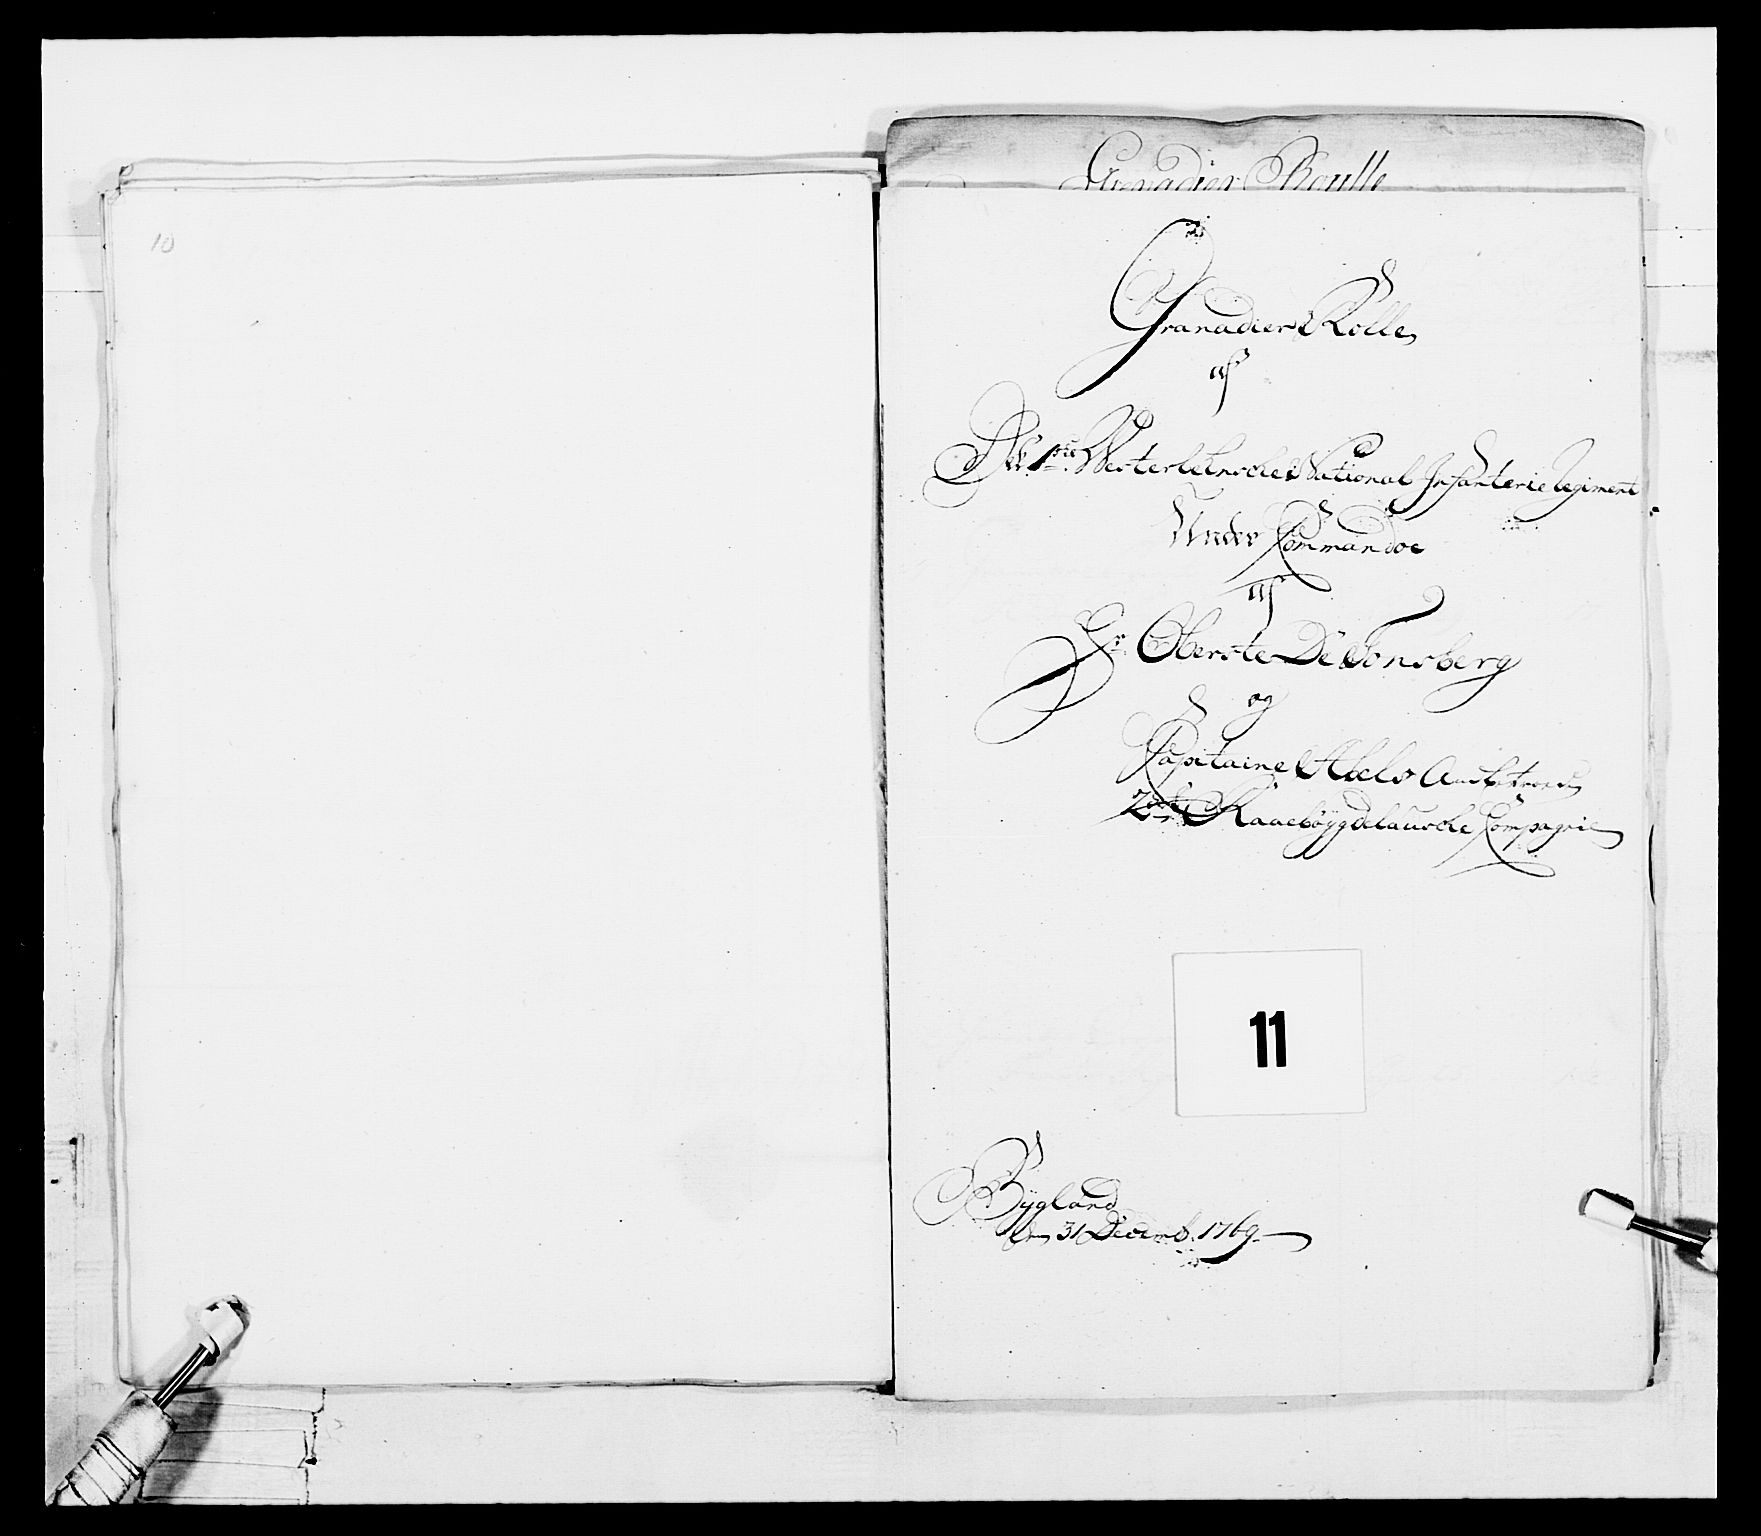 10
Grenadier Roulle
Granadier Rolle
af
1ste Westerlehnske National Infanterie Regiment
Under Commandoe
af
Hr Oberste De Tonsberg
og
Capitaine Abels
2den Raaebøygdelauske Compagnie
11
Bygland
den 31 Decemb. 1769